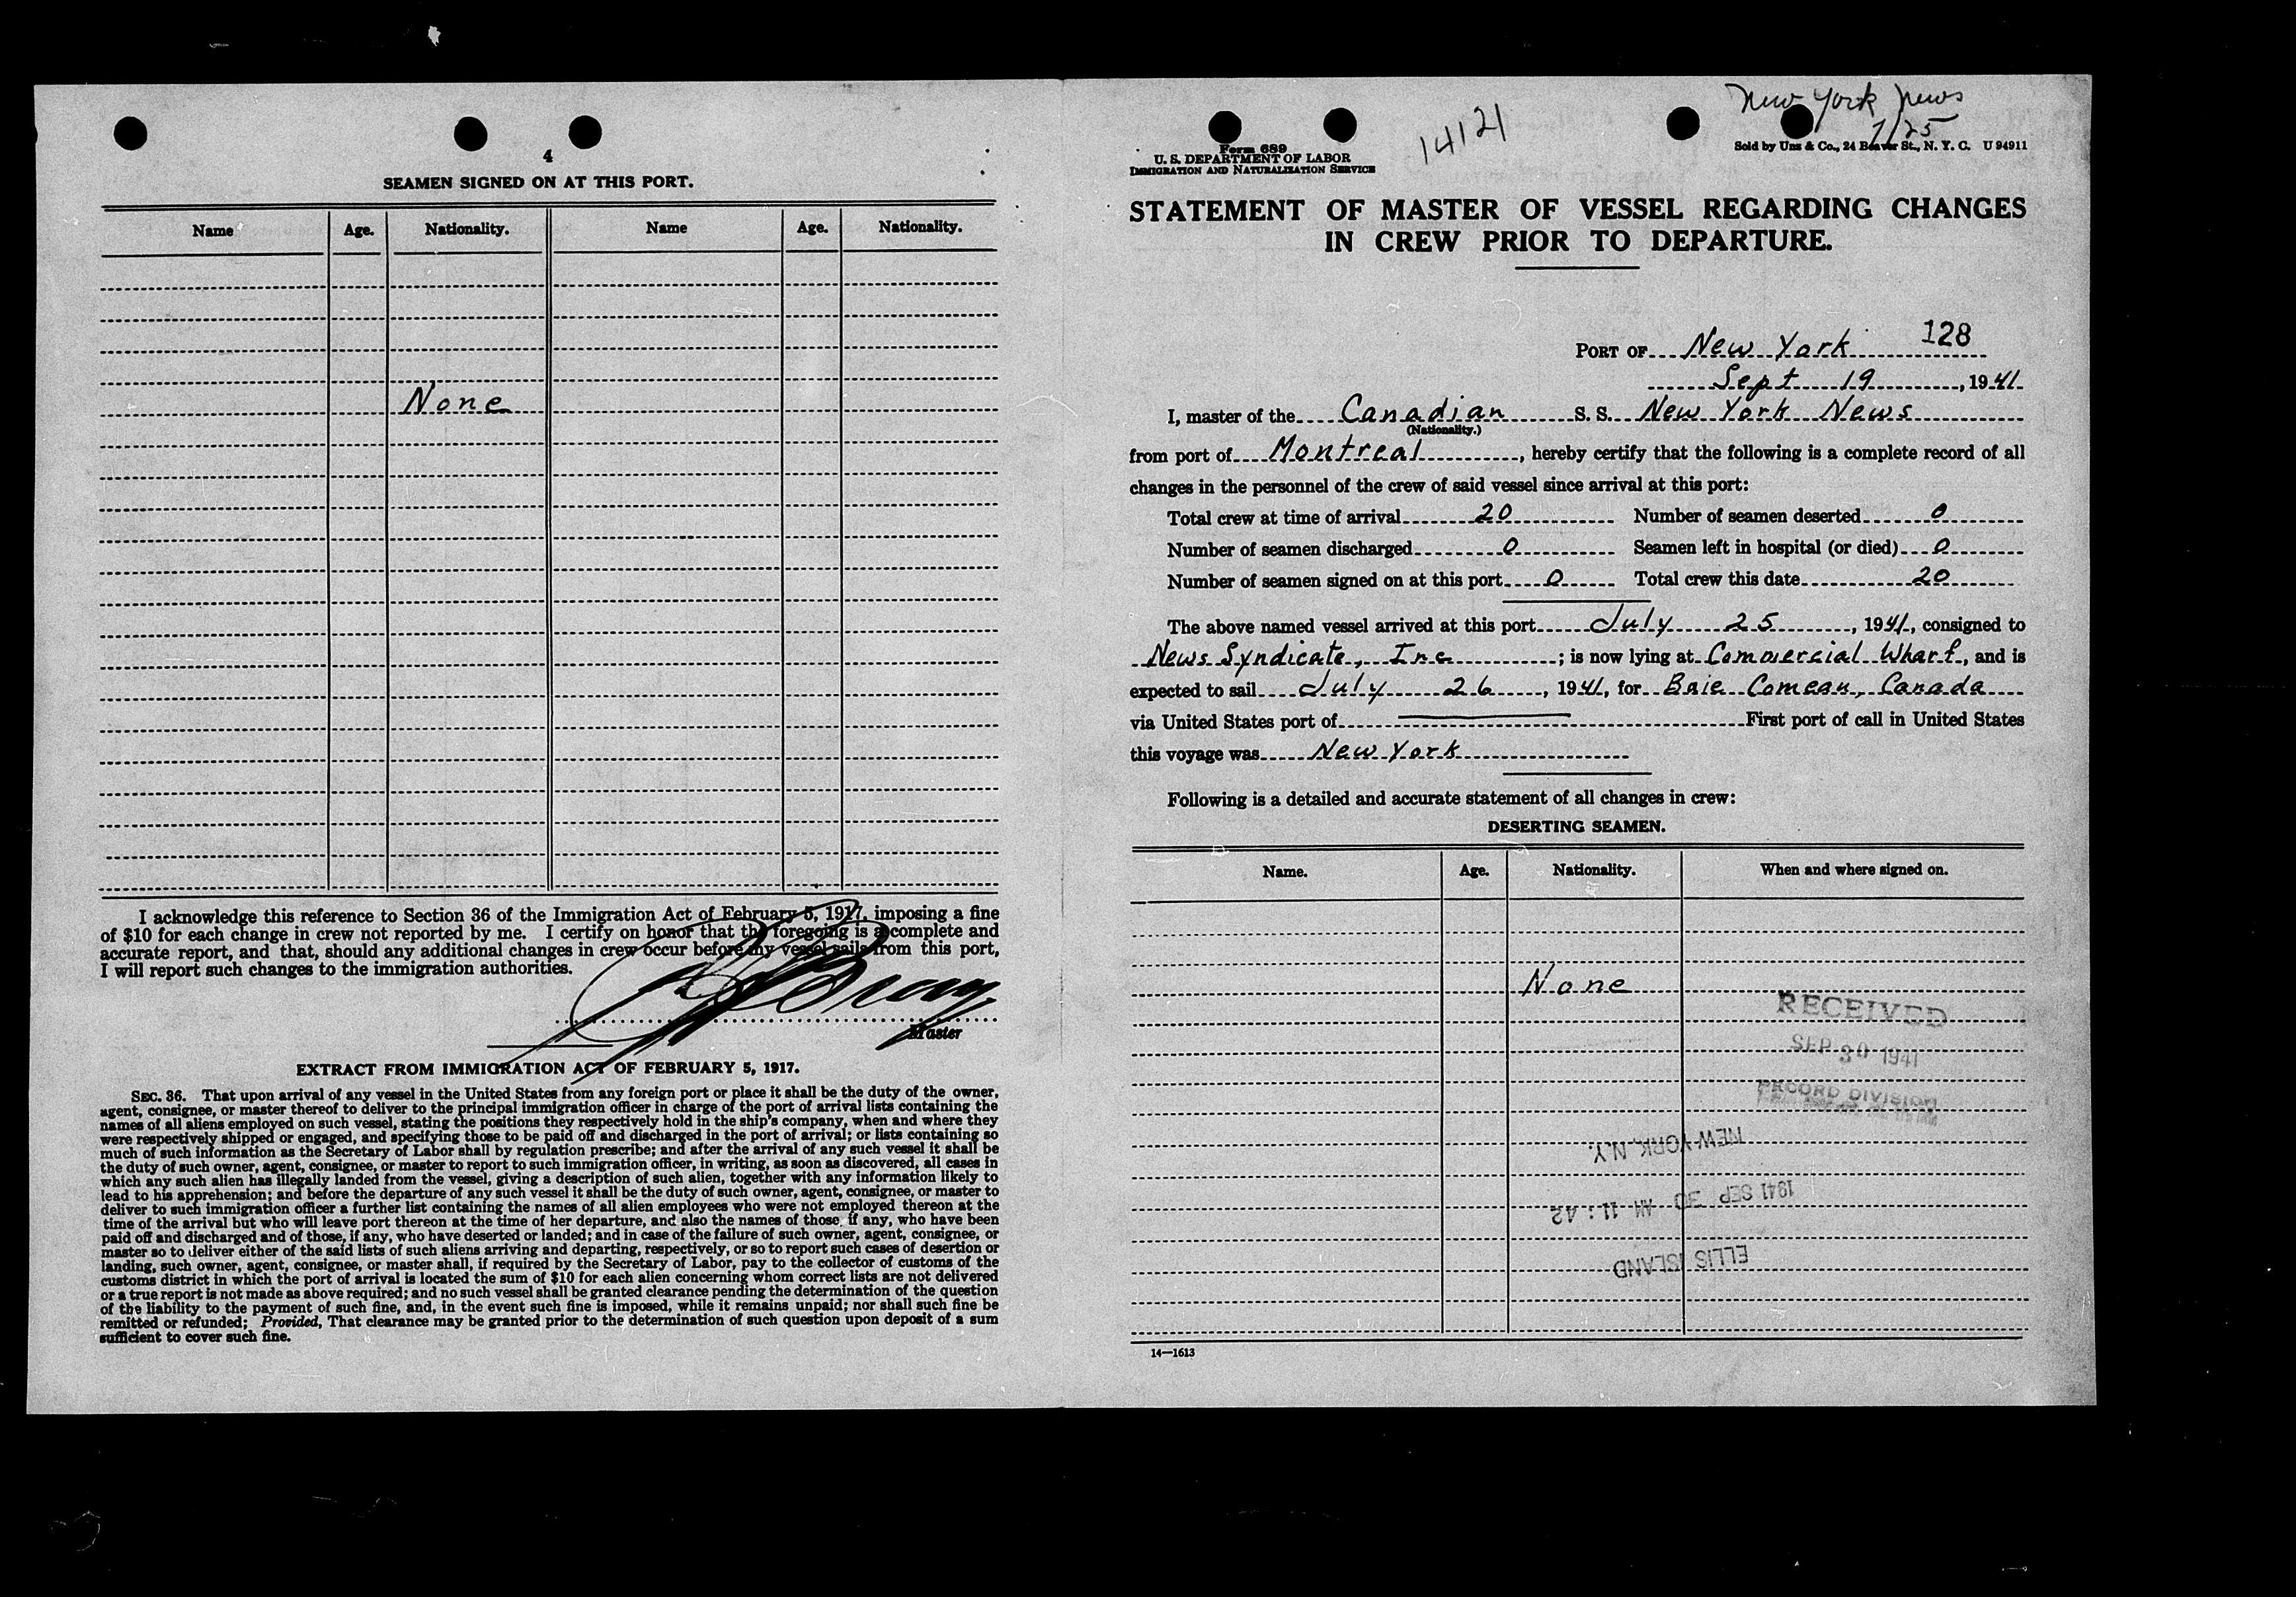 4
SEAMEN SIGNED ON AT THIS PORT.
Name Age. Nationality. Name Age. Nationality.
None
I acknowledge this reference to Section 36 of the Immigration Act of February 5, 1917, imposing a fine
of $10 for each change in crew not reported by me. I certify on honor that the foregoing is a complete and
accurate report, and that, should any additional changes in crew occur before my vessel sails from this port,
I will report such changes to the immigration authorities.
Master
EXTRACT FROM IMMIGRATION ACT OF FEBRUARY 5, 1917.
SEC. 36. That upon arrival of any vessel in the United States from any foreign port or place it shall be the duty of the owner,
agent, consignee, or master thereof to deliver to the principal immigration officer in charge of the port of arrival lists containing the
names of all aliens employed on such vessel, stating the positions they respectively hold in the ship's company, when and where they
were respectively shipped or engaged, and specifying those to be paid off and discharged in the port of arrival; or lists containing so
much of such information as the Secretary of Labor shall by regulation prescribe; and after the arrival of any such vessel it shall be
the duty of such owner, agent, consignee, or master to report to such immigration officer, in writing, as soon as discovered, all cases in
which any such alien has illegally landed from the vessel, giving a description of such alien, together with any information likely to
lead to his apprehension; and before the departure of any such vessel it shall be the duty of such owner, agent, consignee, or master to
deliver to such immigration officer a further list containing the names of all alien employees who were not employed thereon at the
time of the arrival but who will leave port thereon at the time of her departure, and also the names of those, if any, who have been
paid off and discharged and of those, if any, who have deserted or landed; and in case of the failure of such owner, agent, consignee, or
master so to deliver either of the said lists of such aliens arriving and departing, respectively, or so to report such cases of desertion or
landing, such owner, agent, consignee, or master shall, if required by the Secretary of Labor, pay to the collector of customs of the
customs district in which the port of arrival is located the sum of $10 for each alien concerning whom correct lists are not delivered
or a true report is not made as above required; and no such vessel shall be granted clearance pending the determination of the question
of the liability to the payment of such fine, and, in the event such fine is imposed, while it remains unpaid; nor shall such fine be
remitted or refunded; Provided, That clearance may be granted prior to the determination of such question upon deposit of a sum
sufficient to cover such fine.
New York News
7/25
14121
Form 689
U. S. DEPARTMENT OF LABOR
IMMIGRATION AND NATURALIZATION SERVICE
Sold by Unz & Co., 24 Beaver St., N. Y. C. U 94911
STATEMENT OF MASTER OF VESSEL REGARDING CHANGES
IN CREW PRIOR TO DEPARTURE.
128
PORT OF New York
Sept 19, 1941
I, master of the Canadian S. S. New York News
(Nationality.)
from port of Montreal, hereby certify that the following is a complete record of all
changes in the personnel of the crew of said vessel since arrival at this port:
Total crew at time of arrival 20 Number of seamen deserted 0
Number of seamen discharged 0 Seamen left in hospital (or died) 0
Number of seamen signed on at this port 0 Total crew this date 20
The above named vessel arrived at this port July 25, 1941, consigned to
News Syndicate, Inc; is now lying at Commercial Wharf, and is
expected to sail July 26, 1941, for Baie Comeau, Canada
via United States port of First port of call in United States
this voyage was New York
Following is a detailed and accurate statement of all changes in crew:
DESERTING SEAMEN.
Name. Age. Nationality. When and where signed on.
None
RECEIVED
SEP 30 1941
RECORD DIVISION
NEW YORK, N.Y.
1941 SEP 30 AM 11:42
ELLIS ISLAND
14—1613